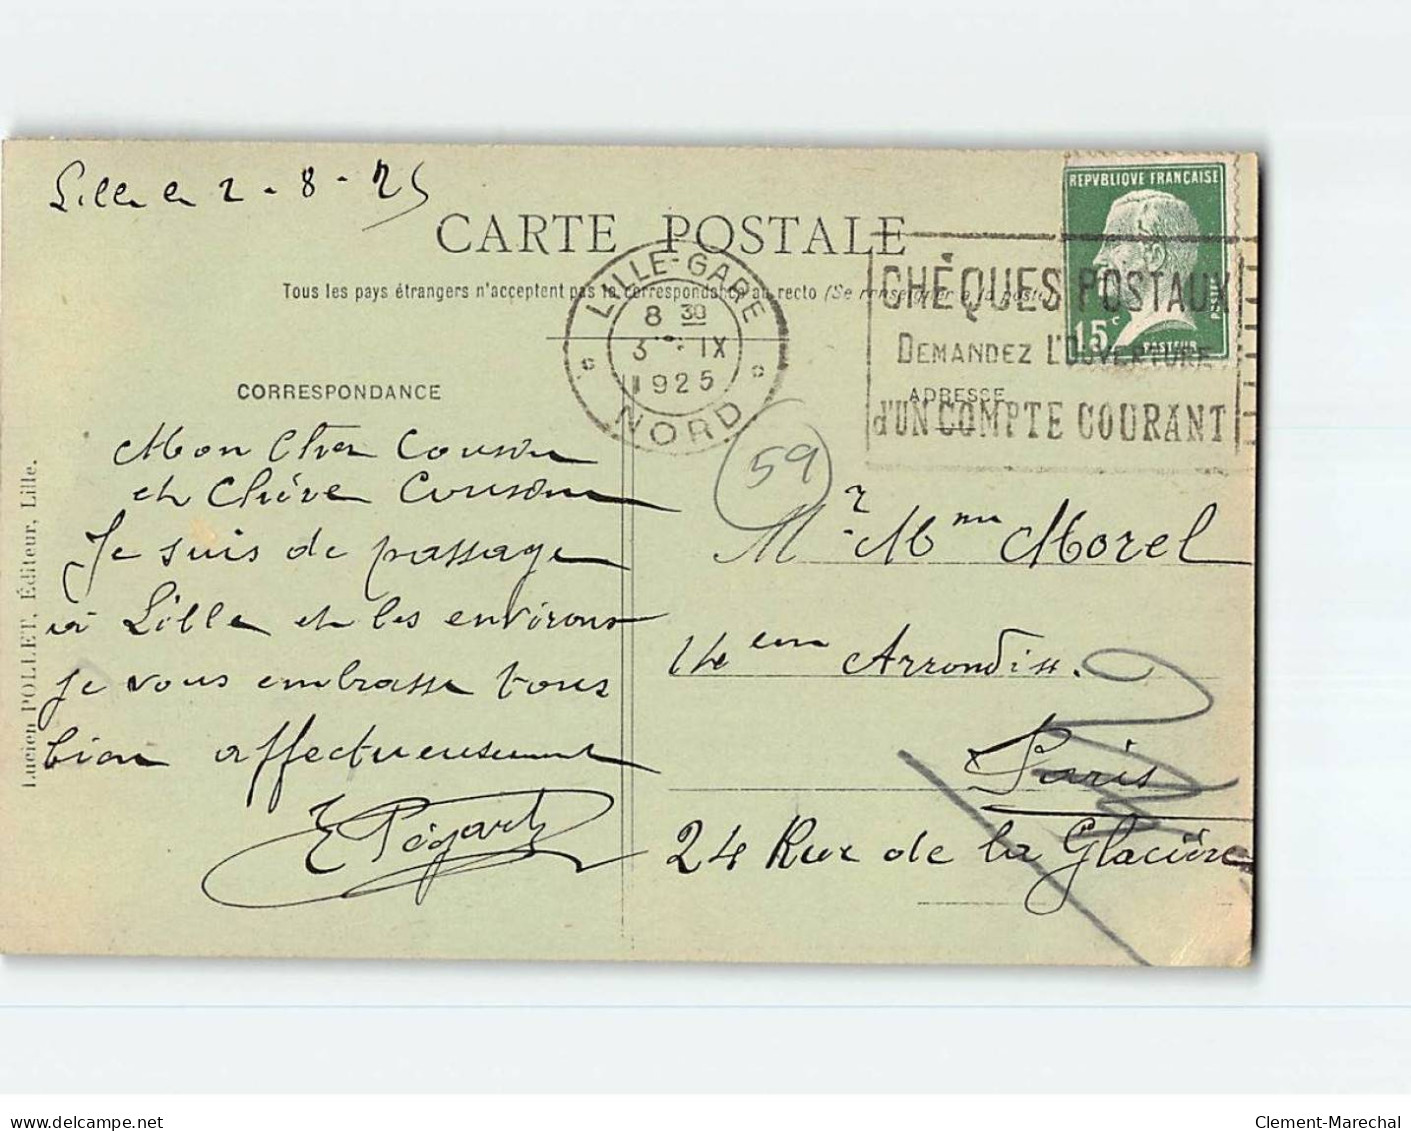 Lille le 2-8-25
CARTE POSTALE
Tous les pays étrangers n'acceptent pas la correspondance au recto (Se renseigner à la poste)
REPVBLIQVE FRANÇAISE
POSTES
15c
PASTEUR
LILLE-GARE
8 30
3 IX
1925
NORD
CHÈQUES POSTAUX
DEMANDEZ L'OUVERTURE
d'UN COMPTE COURANT
CORRESPONDANCE
ADRESSE
59
Mon Cher Cousin
et Chère Cousine
Je suis de passage
à Lille et les environs
je vous embrasse tous
bien affectueusement
Lucien POLLET, Éditeur, Lille.
Mr Mme Morel
14eme Arrondist.
Paris
24 Rue de la Glacière
www.delcampe.net
Clement-Marechal